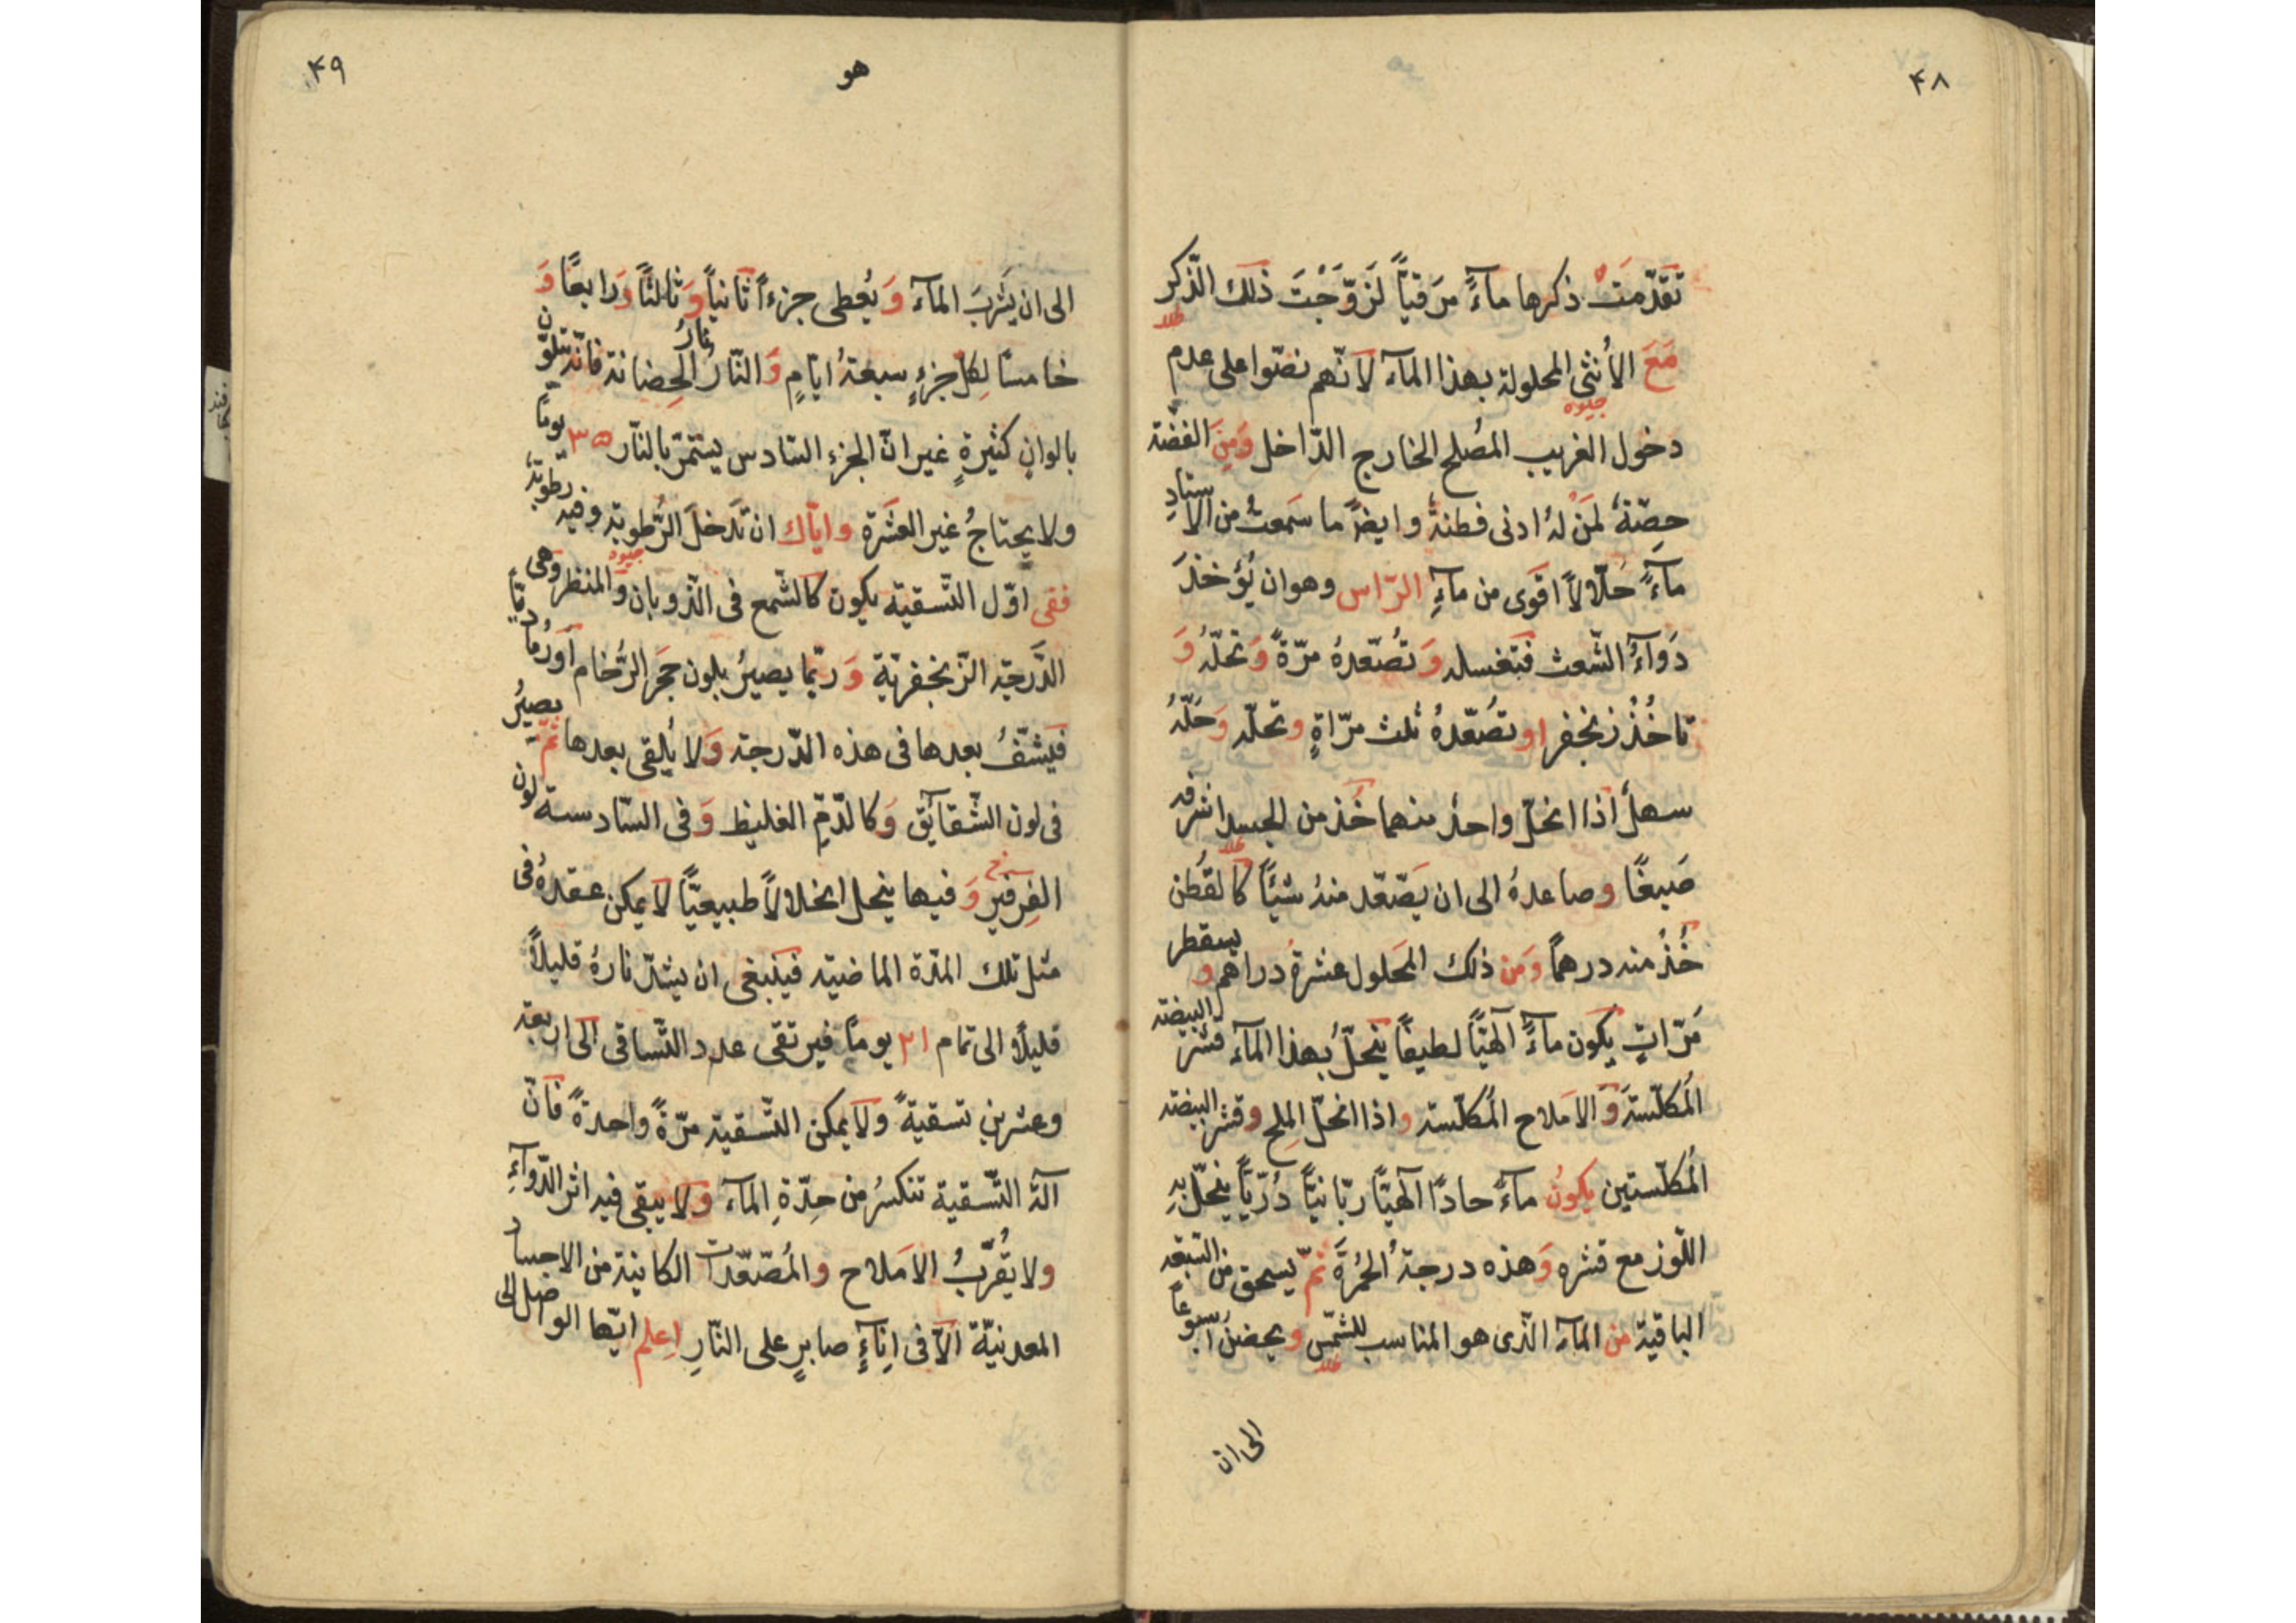 ۴۸
تقدّمَت ذكرها مآءً مرَقياً لَزوّجْتَ ذلك الذّكر
طلا
مَعَ الاُنثى المحلولة بهذا المآء لانّهم نصّوا على عدم
جيوه
دخول الغريب المصُلح الخارج الدّاخل وَمِنَ الفضّة
حصّةٌ لمَنْ لهُ ادنى فطنةٌ وايضًا ما سَمعتُ من الاُستادِ
مآءً حلّالاً اقوى من مآءِ الرّاس وهو ان يُؤخذَ
دَوآءُ الشّعث فتغسله وَ تُصّعدهُ مرّةً وَ تحلّهُ وَ
تاخُذُ زنجفر او تصُعّدهُ ثلث مرّاةٍ و تحلّه وَ حَلّهُ
سهلٌ اذا انحلّ واحدٌ منهما خُذ من الجسد اشرفه
طلا
صَبغًا و صاعدهُ الى ان يَصّعّد منهُ شيئًا كالقُطن
خُذْ منه درهماً وَمن ذلك المحلول عشرةُ دراهم و يسقطر
مَرّاتٍ يكون مآءً آلهيّاً لطيفاً ينحلّ بهذا المآء قشر البيضته
المُكلّسته وَ الامَلاح المُكلّسته و اذا انحلّ المِلح و قشر البيضته
المُكلّستين يكونُ مآءً حادًا آلهيّاً ربّانيّاً دُرّيّاً ينحلّ بهِ
اللّوز مع قشره وَ هذه درجةُ الحُمُرة ثمّ يسحق من التبقه
الباقية من المآء الّذى هو المناسب للشّمس و يحضنُ اُسبوعاً
طلا
الى ان
هو
۴۹
الى ان يَشرَبَ المآء وَ يُعطى جزءاً ثانياً وَ ثالثاً وَ رابعًا وَ
خامسًا لِكلّ جزءٍ سبعةُ ايّامٍ وَ النّارُ نارُ الحِضانة فانّه يتلوّن
بالوانٍ كثيرةٍ غير انّ الجزء السّادس يستمرّ بالنّار ۳۵ يومًا
ولا يحتاجُ غير العشَرة و ايّاك ان تَدخلَ الرّطوبة و فيه رطوبةٌ
جيوه
ففى اوّل التّسقيه يكون كالشّمع فى الذّوبان وَ المنظر وَهى
الدَّرجة الزّنجفريّة وَ ربّما يصيرُ بلون حَجَر الرُّخام اَو رُمادِيّاً
فيَشّفُ بعدها فى هذه الدّرجة وَ لا يُلقى بعدها ثمّ يصيرُ
فى لون الشّقآئق وَ كالدّمّ الغليظ وَ فى السّادسة لون
سرخ
الفِرفيرِ وَ فيها ينحل انحلالاً طبيعيّاً لا يمكن عقدهُ فى
مثل تلك المدّة الماضيته فينبغى ان يشدّ نارهُ قليلاً
قليلاً الى تمام ۲۱ يوماً فيرتقى عدد التّساقى الى اربعة
و عشرينِ تسقيةً و لا يمكن التّسقيةُ مرّةً واحدةً فانّ
آلة التّسقية تنكسرُ من حِدّةِ المآء و لا يبقى فيه اثر الدّوآءِ
و لا يُقرّبُ الامَلاح و المُصّعّدات الكائنة من الاجساد
المعدنيّة الّا فى اِنآءٍ صابرٍ على النّارِ اِعلم ايّها الواصل الى